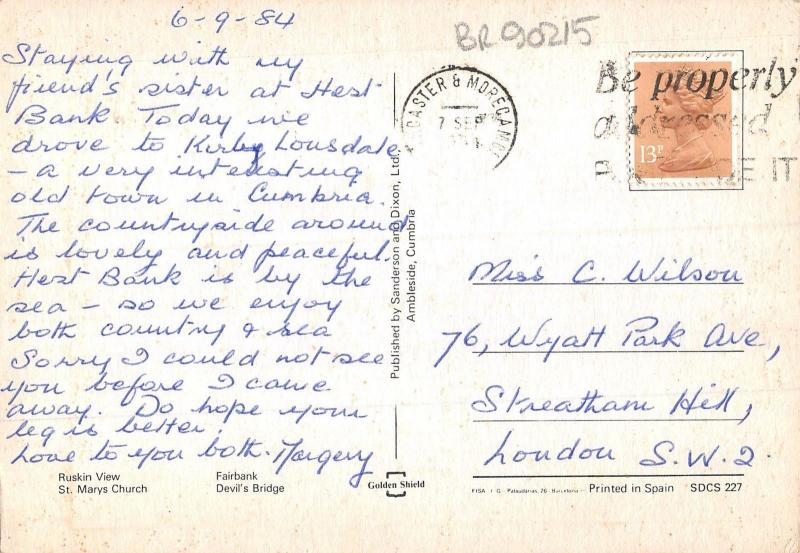 6-9-84
BR90215
Staying with my
friend's sister at Hest
Bank. Today we
drove to Kirby Lonsdale
- a very interesting
old town in Cumbria.
The countryside around
is lovely and peaceful.
Hest Bank is by the
sea - so we enjoy
both country & sea
Sorry I could not see
you before I came
away. Do hope your
leg is better.
Love to you both. Margery
Ruskin View
St. Marys Church
Fairbank
Devil's Bridge
Published by Sanderson and Dixon, Ltd.
Ambleside, Cumbria
Golden Shield
CASTER & MORECAMB
7 SEP
Be properly
addressed
13P
E IT
Miss C. Wilson
76, Wyatt Park Ave,
Streatham Hill,
London S.W.2.
FISA I. G. Palaudarias, 26 - Barcelona - Printed in Spain SDCS 227